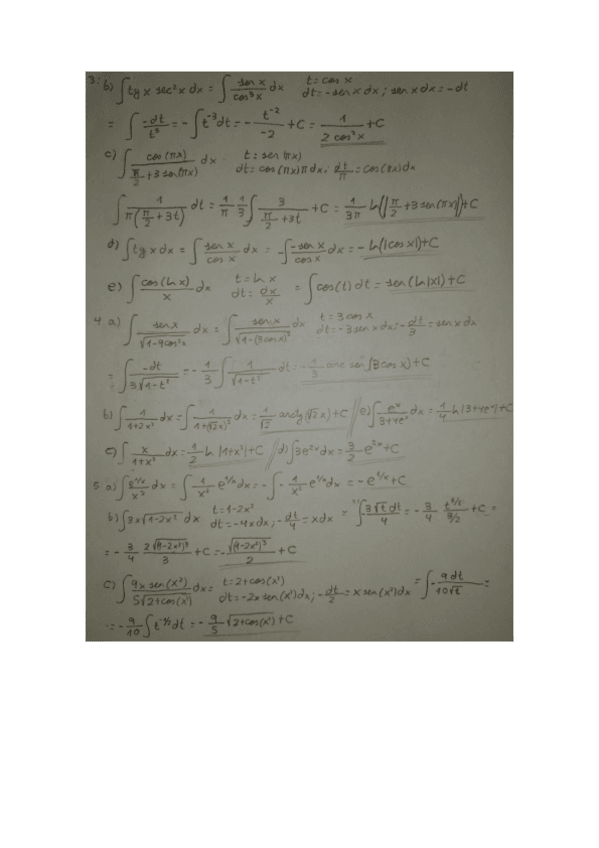 3. b) ∫ tg x sec²x dx = ∫ sen x / cos³x dx   t = cos x   dt = -sen x dx ; sen x dx = -dt
= ∫ -dt / t³ = -∫ t⁻³ dt = - t⁻² / -2 + C = 1 / 2 cos²x + C
c) ∫ cos(πx) / (π/2 + 3 sen(πx)) dx   t = sen(πx)   dt = cos(πx)π dx ; dt/π = cos(πx) dx
∫ 1 / π(π/2 + 3t) dt = 1/π 1/3 ∫ 3 / (π/2 + 3t) + C = 1/3π ln(|π/2 + 3 sen(πx)|) + C
d) ∫ tg x dx = ∫ sen x / cos x dx = -∫ -sen x / cos x dx = - ln(|cos x|) + C
e) ∫ cos(ln x) / x dx   t = ln x   dt = dx/x   = ∫ cos(t) dt = sen(ln|x|) + C
4. a) ∫ sen x / √(1-9cos²x) dx = ∫ sen x / √(1-(3cos x)²) dx   t = 3 cos x   dt = -3 sen x dx ; -dt/3 = sen x dx
= ∫ -dt / 3√(1-t²) = -1/3 ∫ 1 / √(1-t²) dt = -1/3 arc sen(3 cos x) + C
b) ∫ 1 / (1+2x²) dx = ∫ 1 / (1+(√2x)²) dx = 1/√2 arctg(√2 x) + C // e) ∫ eˣ / (3+4eˣ) dx = 1/4 ln|3+4eˣ| + C
c) ∫ x / (1+x²) dx = 1/2 ln|1+x²| + C // d) ∫ 3e²ˣ dx = 3/2 e²ˣ + C
5. a) ∫ e^(1/x) / x² dx = ∫ 1/x² e^(1/x) dx = -∫ - 1/x² e^(1/x) dx = -e^(1/x) + C
b) ∫ 3x√(1-2x²) dx   t = 1-2x²   dt = -4x dx ; -dt/4 = x dx   = ∫ -3√t dt / 4 = -3/4 t^(3/2) / 3/2 + C =
= -3/4 2√(1-2x²)³ / 3 + C = -√(1-2x²)³ / 2 + C
c) ∫ 9x sen(x²) / 5√(2+cos(x²)) dx =   t = 2+cos(x²)   dt = -2x sen(x²) dx ; -dt/2 = x sen(x²) dx   = ∫ - 9 dt / 10√t =
= -9/10 ∫ t^(-1/2) dt = -9/5 √(2+cos(x²)) + C